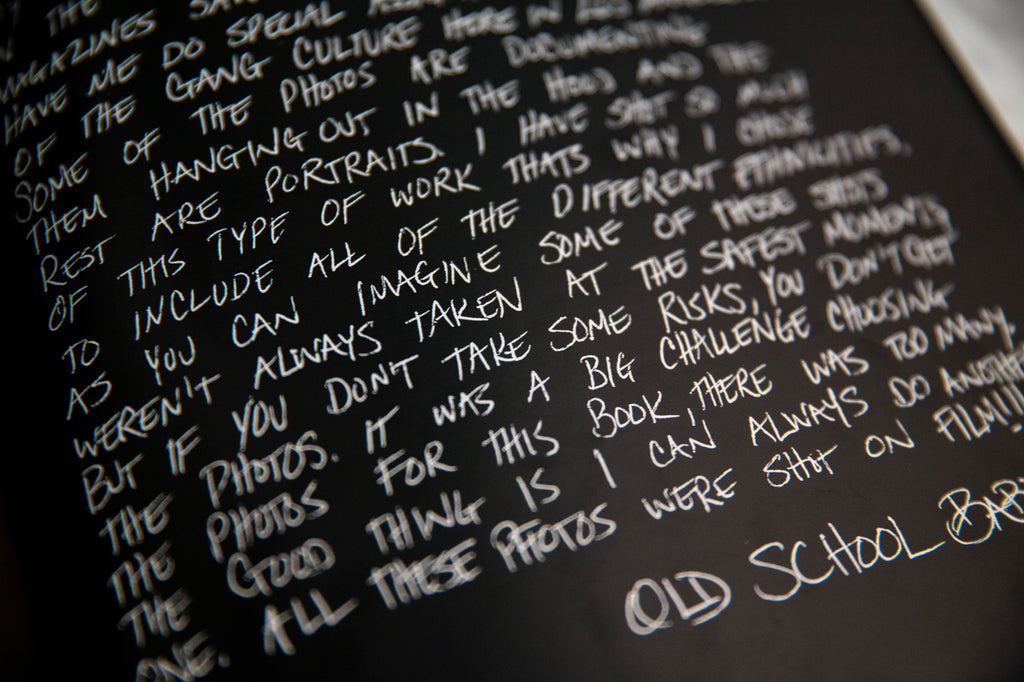 THE
MAGAZINES SAW
HAVE ME DO SPECIAL
OF THE GANG CULTURE HERE IN LOS
SOME OF THE PHOTOS ARE DOCUMENTING
THEM HANGING OUT IN THE HOOD AND THE
REST ARE PORTRAITS. I HAVE SHOT SO MUCH
OF THIS TYPE OF WORK THATS WHY I CHOSE
TO INCLUDE ALL OF THE DIFFERENT ETHNICITIES,
AS YOU CAN IMAGINE SOME OF THESE SHOTS
WEREN'T ALWAYS TAKEN AT THE SAFEST MOMENTS
BUT IF YOU DON'T TAKE SOME RISKS, YOU DON'T GET
THE PHOTOS. IT WAS A BIG CHALLENGE CHOOSING
THE PHOTOS FOR THIS BOOK, THERE WAS TOO MANY.
THE GOOD THING IS I CAN ALWAYS DO ANOTHER
ONE. ALL THESE PHOTOS WERE SHOT ON FILM!!!
OLD SCHOOL BAB